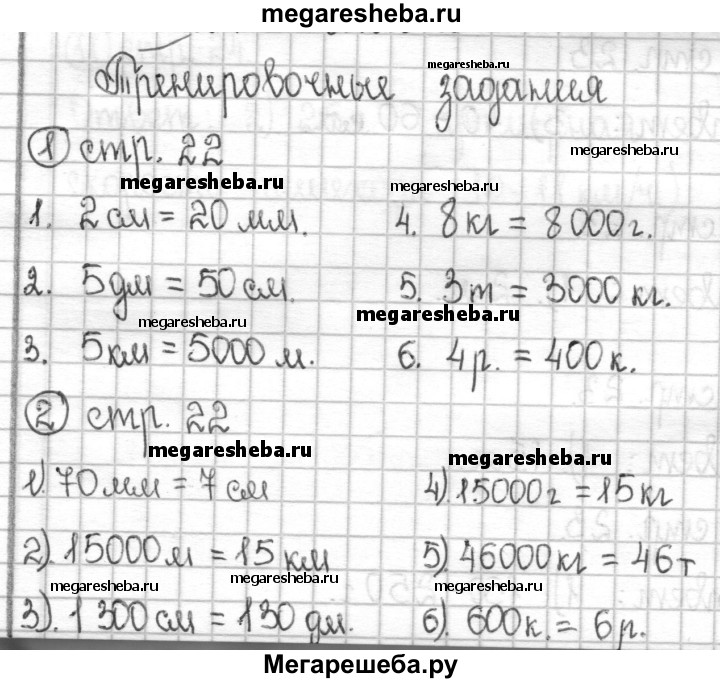 megaresheba.ru
Тренировочные задания
megaresheba.ru
1 стр. 22
megaresheba.ru
megaresheba.ru megaresheba.ru
1. 2 см = 20 мм. 4. 8 кг = 8000 г.
2. 5 дм = 50 см. 5. 3 т = 3000 кг.
megaresheba.ru megaresheba.ru
3. 5 км = 5000 м. 6. 4 р. = 400 к.
2 стр. 22
megaresheba.ru megaresheba.ru
1) 70 мм = 7 см 4) 15000 г = 15 кг
2). 15000 м = 15 км 5). 46000 кг = 46 т
megaresheba.ru megaresheba.ru megaresheba.ru
3). 1300 см = 130 дм. 6). 600 к. = 6 р.
Мегарешеба.ру